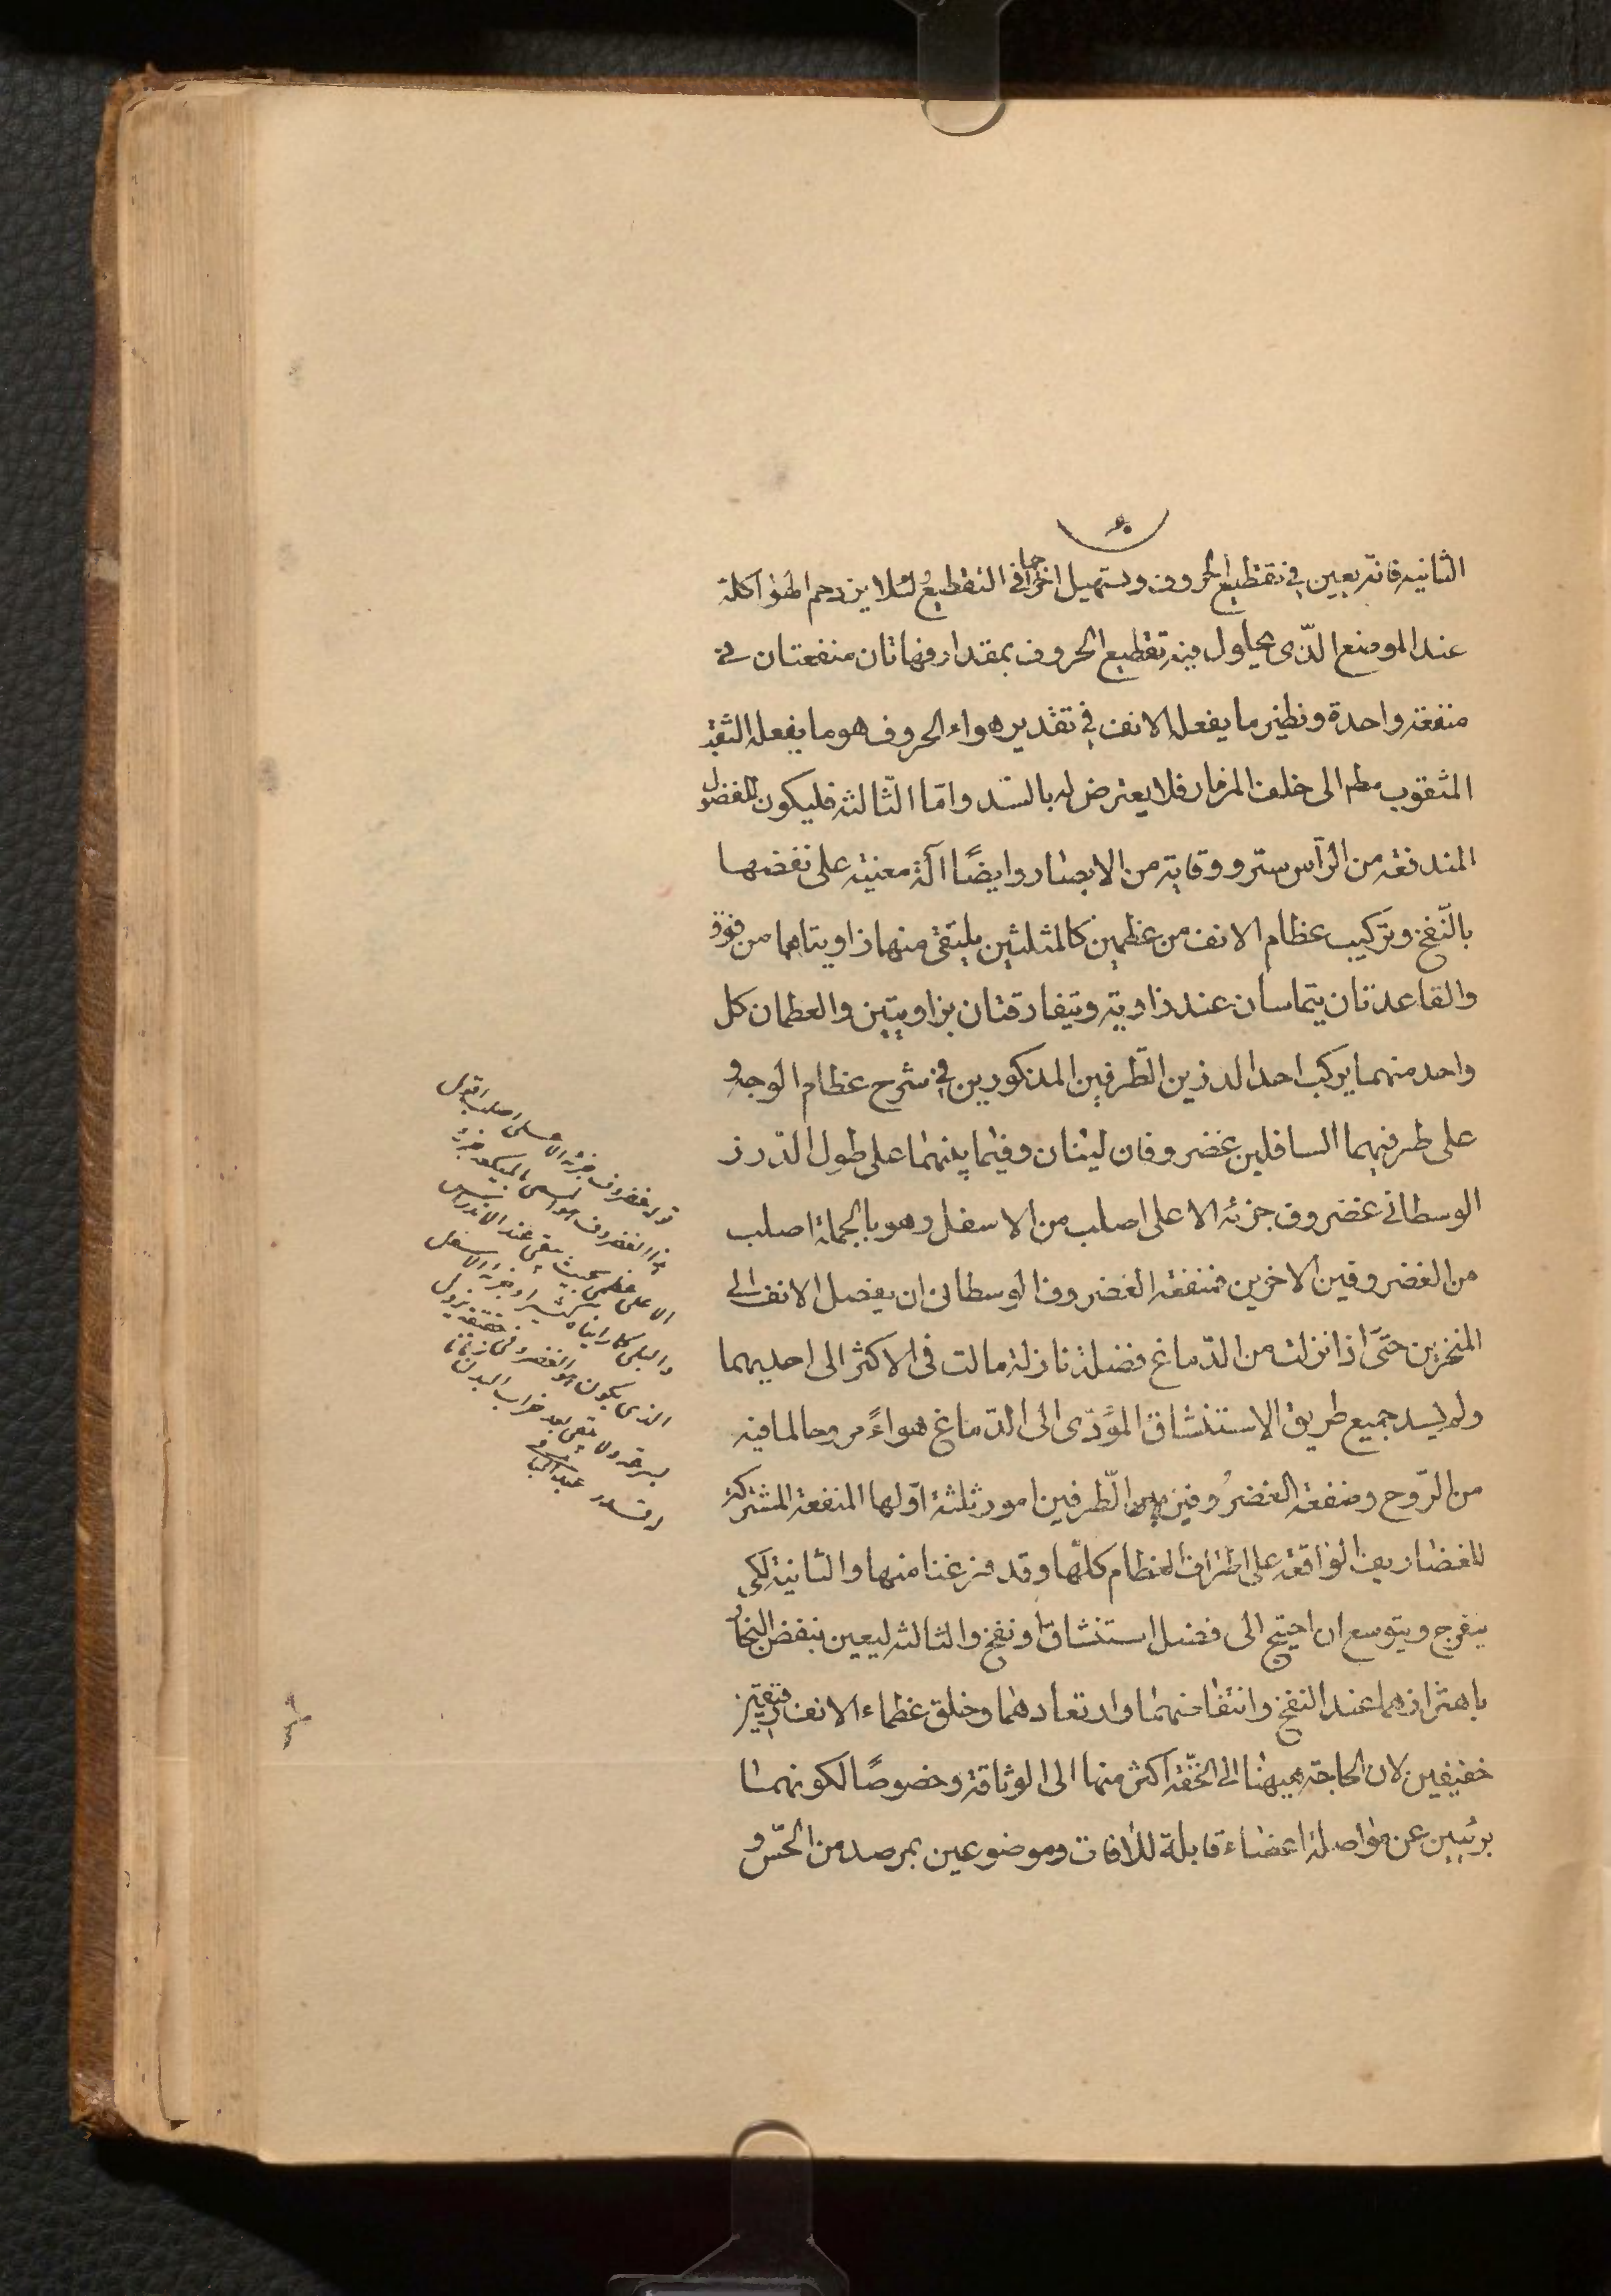 الثانيه فانه يعين فى تقطيع الحروف وتسهيل اخراجها فى التقطيع لئلا يزدحم الهوا كله
عند الموضع الذى يحاول فيه تقطيع الحروف بمقدار فهاتان منفعتان فى
منفعة واحدة ونظير ما يفعله الانف فى تقدير هواء الحروف هو ما يفعله الثقبه
المثقوب مطم الى خلف المزمار فلا يعترض له بالسد وامّا الثالثه فليكون للفضول
المندفعه من الرأس ستر ووقاية من الابصار وايضًا آلة معنية على نفضها
بالنّفخ وتركيب عظام الانف من عظمين كالمثلثين يلتقى منها زاويتاهما من فوق
والقاعدتان يتماسان عند زاوية وتيفارقتان بزاويتين والعظمان كل
واحد منهما يركب احد الدرزين الطّرفين المذكورين فى شرح عظام الوجه و
على طرفيهما السافلين غضروفان لينان وفيما بينهما على طول الدّرز
الوسطانى غضروف جزئه الاعلى اصلب من الاسفل وهو بالجملة اصلب
من الغضروفين الاخرين فمنفعة الغضروف الوسطانى ان يفصل الانف الى
المنخرين حتّى اذا نزلت من الدّماغ فضلة نازلة مالت فى الاكثر الى احديهما
ولم يسد جميع طريق الاستنشاق المؤدّى الى الدّماغ هواءً مروحا لما فيه
من الرّوح ومنفعة الغضروفين الطّرفين امور ثلثة اوّلها المنفعة المشتركة
للغضاريف الواقعة على اطراف العظام كلّها وقد فرغنا منها والثانية لكى
ينفرج ويتوسع ان احتيج الى فضل استنشاق او نفخ والثالثه ليعين بنفض البخار
باهتزازهما عند النفخ وانتفاضهما وارتعادهما وخلق عظماء الانف رقيقين
خفيفين لان الحاجة هيهنا الى الخفّة اكثر منها الى الوثاقة وخصوصًا لكونهما
بريئين عن مواصلة اعضاء قابلة للآفات وموضوعين بمرصد من الحسّ و
قوله غضروف جزئه الاعلى اصلب اقول
هذا الغضروف هو المسمى بالميكعه جزئه
الاعلى عظمى بحيث يبقى عند الاندراس
والبلى كما رايناه كثيرا وجزئه الاسفل
الذى يكون هو الغضروفى حقيقة يزول
بسرعة ولا يبقى بعد خراب البدن